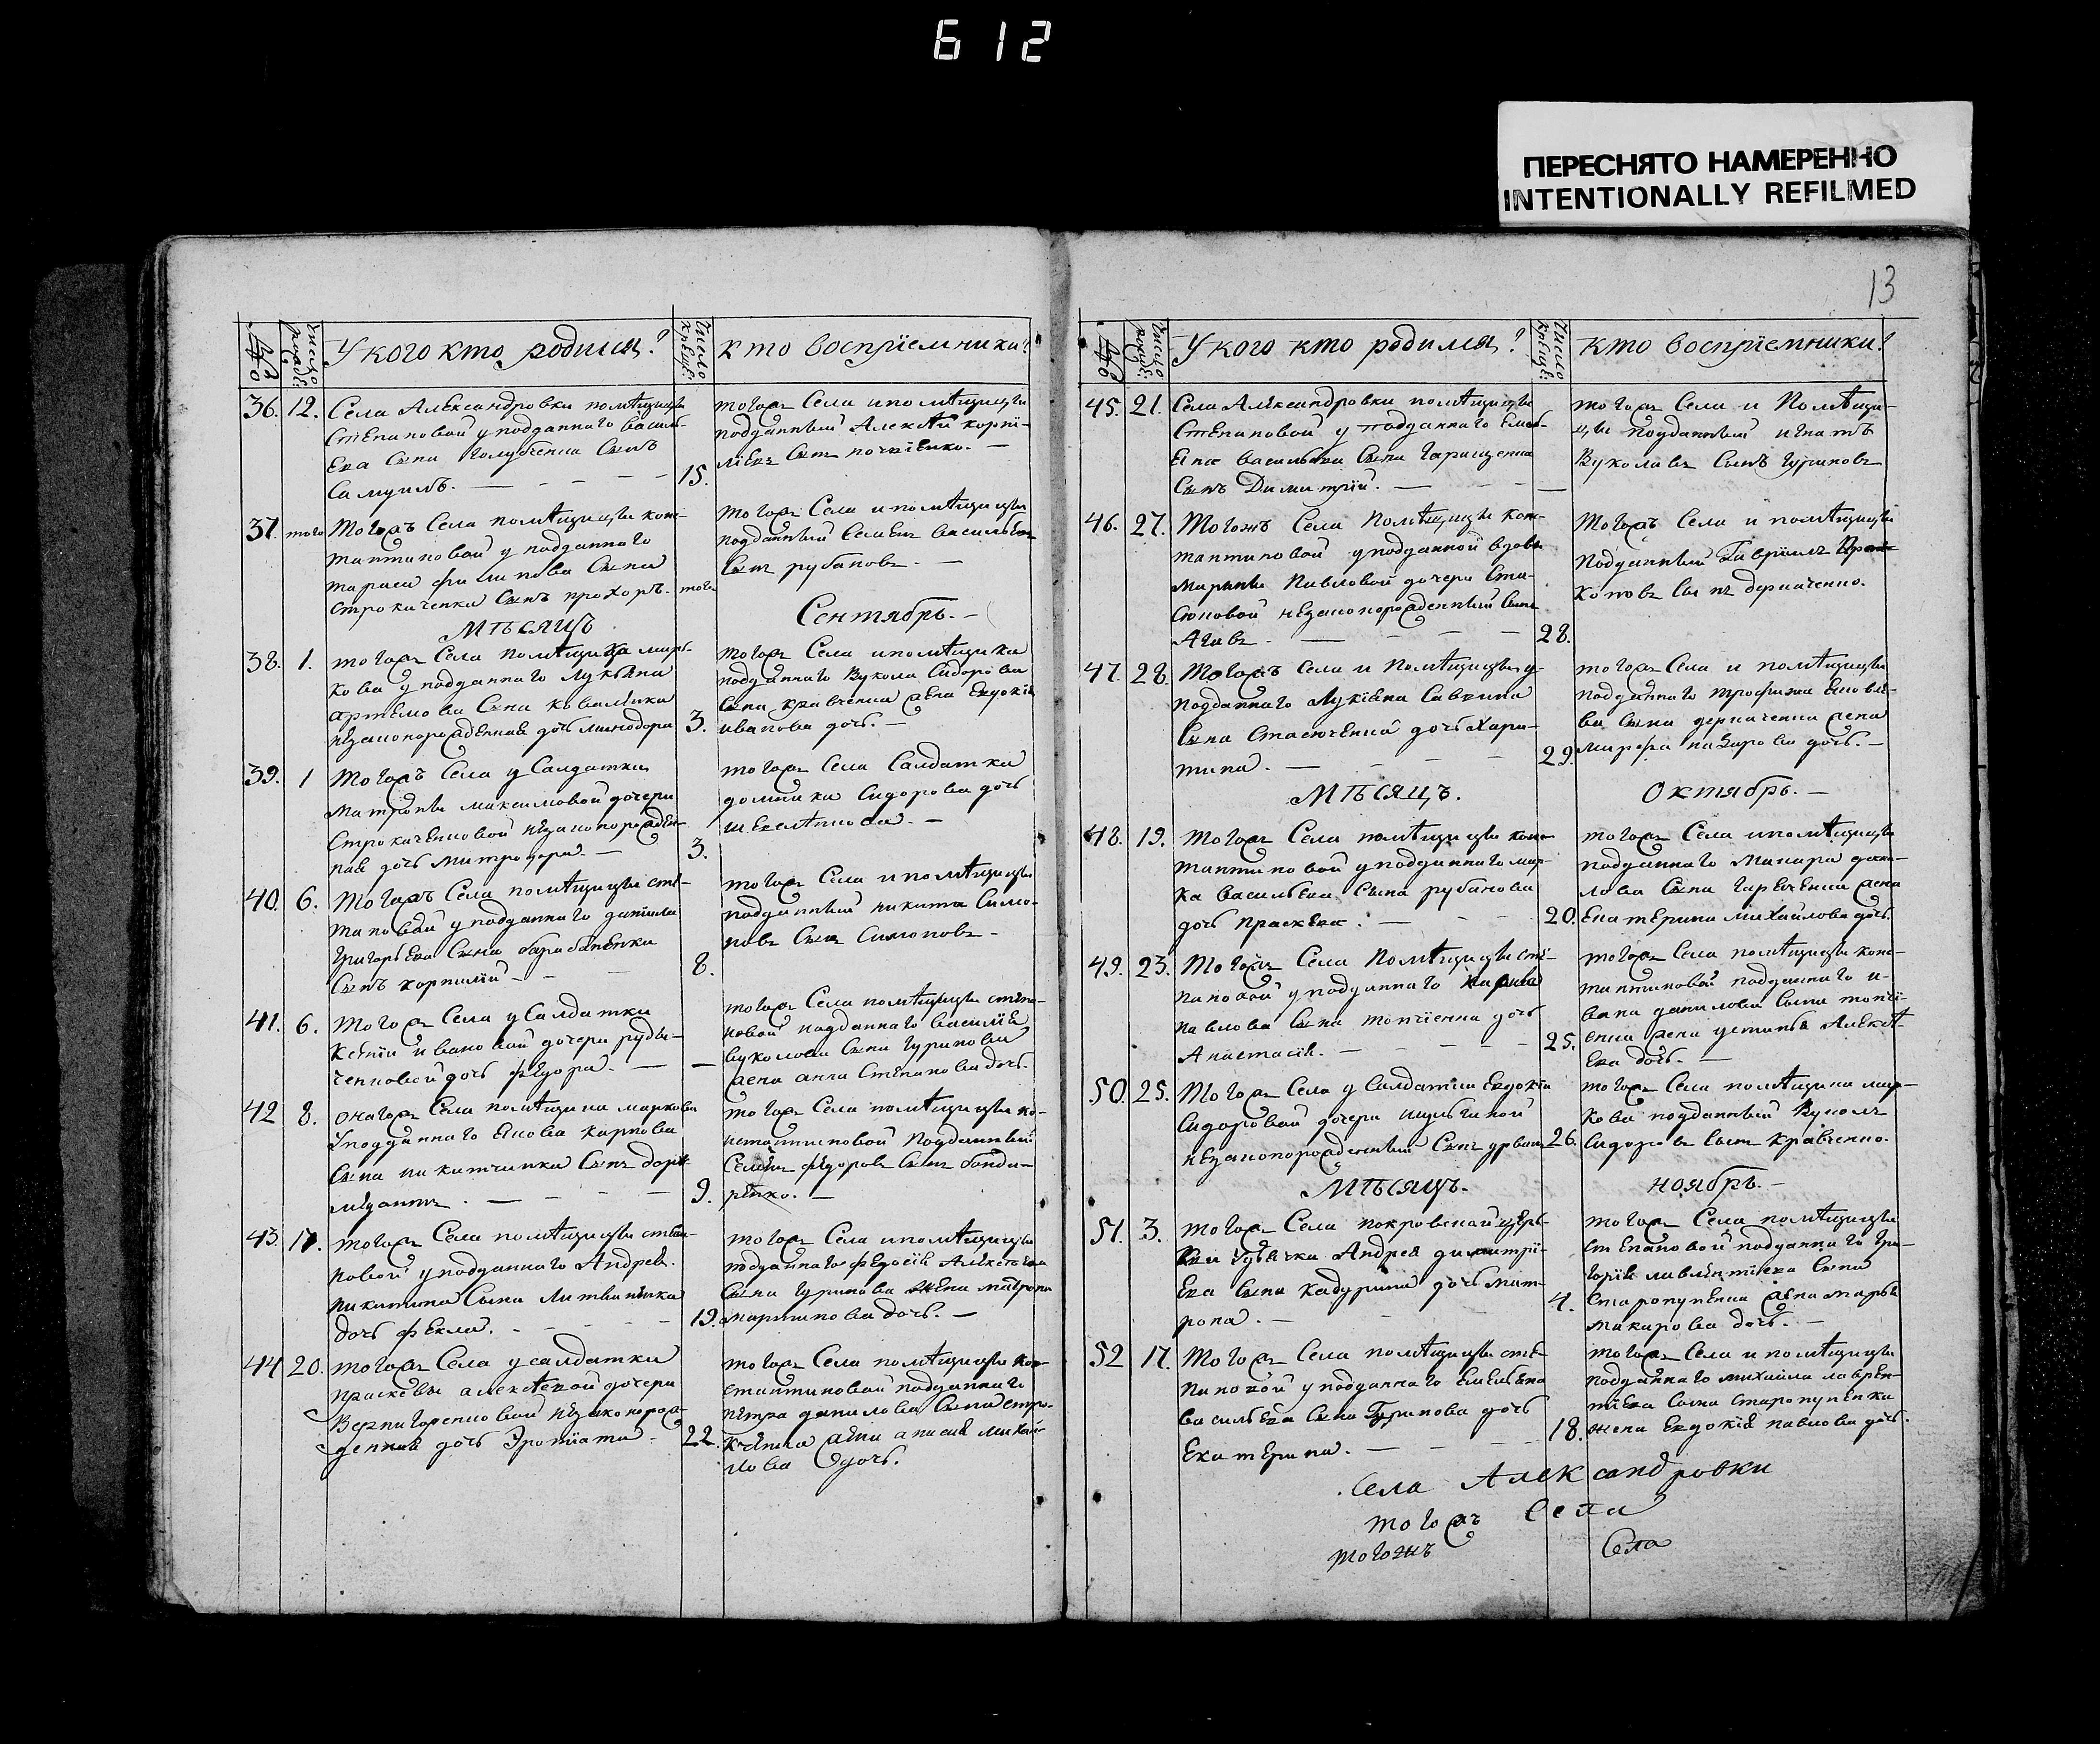 612
ПЕРЕСНЯТО НАМЕРЕННО
INTENTIONALLY REFILMED
№
число рожд:
У кого кто родился?
число крещ:
кто воспрiемники?
36. 12. Села Александровки помѣщицы
Степановой у подданнаго Василь-
ева сына Голубченка сынъ
Самуилъ.
15.
тогожъ Села и помѣщицы
подданный Алексѣй Корнi-
лiевъ сынъ
37. того Тогожъ Села помѣщицы конс-
тантиновой у подданнаго
тараса филипова сына
строкаченка сынъ прохоръ.
того
тогожъ Села и помѣщицы
подданный Семенъ васильевъ
сынъ рубановъ.
Мѣсяцъ
Сентябрь.
38. 1. тогожъ Села помѣщика мар-
кова у подданнаго Лукьяна
артемова сына ковалика
незаконорожденная дочь минодора
3.
тогожъ Села и помѣщика
подданнаго Вукола Сидорова
сына кравченка жена Евдокiя
иванова дочь.
39. 1 Тогожъ Села у Салдатки
матроны максимовой дочери
Строкаченковой незаконорожден-
ная дочь митродора.
3.
тогожъ Села Салдатка
домника Сидорова дочь
40. 6. Тогожъ Села помѣщицы сте-
пановой у подданнаго данiила
Григорьева сына барабаненка
сынъ корнилiй
8.
тогожъ Села и помѣщицы
подданный никита Симо-
новъ сынъ Симоновъ
41. 6. Тогожъ Села у Салдатки
Ксенiи ивановой дочери руды-
ченковой дочь федора.
тогожъ Села помѣщицы степа-
новой подданнаго василiя
вуколова сына гуринова
жена анна Степанова дочь.
42 8. онагожъ Села помѣщика маркова
У подданнаго Якова карпова
сына никитченка сынъ дори-
медонтъ.
9.
тогожъ Села помѣщицы ко-
нстантиновой подданный
Семенъ федоровъ сынъ бонда-
ренко.
43. 17. тогожъ Села помѣщицы степа-
новой у подданнаго Андрея
никитина сына литвиненка
дочь фекла.
19.
тогожъ Села и помѣщицы
подданнаго федосiя Алексѣева
сына гуринова жена матрона
мартинова дочь.
44 20. тогожъ Села у салдатки
праскевы алексѣевой дочери
Вернигоренковой незаконорож-
денная дочь
22.
тогожъ Села помѣщицы кон-
стантиновой подданнаго
петра данилова сына стро-
каченка жена анисiя михай-
лова дочь.
13
№
число рожд:
У кого кто родился?
число крещ:
кто воспрiемники?
45. 21. Села Александровки помѣщицы
Степановой у подданнаго Емель-
яна васильева сына Гаращенка
сынъ Димитрiй.
тогожъ Села и Помѣщи-
цы подданный игнатъ
Вуколавъ сынъ гуриновъ
46. 27. Тогожъ Села Помѣщицы конс-
тантиновой у подданной вдовы
марины Павловой дочери Ста-
сюковой незаконорожденный сынъ
28.
Тогожъ Села и помѣщицы
Подданный Гаврiилъ
сынъ дерначенко.
47. 28. Тогожъ Села и Помѣщицы у
подданнаго Лукiяна Саввина
сына Стасюченка дочь Хари-
тина.
29.
тогожъ Села и помѣщицы
подданнаго трофима Яковле-
ва сына дерначенка жена
марфа назарова дочь.
Мѣсяцъ.
Октябрь.
48. 19. Тогожъ Села помѣщицы конс-
тантиновой у подданнаго мар-
ка васильева сына рубанова
дочь Праскева.
20.
тогожъ Села и помѣщицы
подданнаго макара дани-
лова сына жена
Екатерина михайлова дочь.
49. 23. Тогожъ Села Помѣщицы сте-
пановой у подданнаго
павлова сына топчiенка дочь
Анастасiя.
25.
тогожъ Села помѣщицы конс-
тантиновой подданнаго и-
вана данилова сына топчi-
енка жена устинья Алексѣ-
ева дочь.
50. 25. Тогожъ Села у Салдатки Евдокiи
Сидоровой дочери шулгиной
незаконорожденный сынъ
26.
тогожъ Села помѣщика мар-
кова подданный Вуколъ
Сидоровъ сынъ кравченко.
Мѣсяцъ.
ноябрь.
51. 3. тогожъ Села покровской церк-
ви у дьячка Андрея димитрi-
ева сына кадурина дочь мат-
рона.
4.
тогожъ Села помѣщицы
степановой подданнаго Гри-
горiя лаврентiева сына
Старопупенка жена марья
макарова дочь.
52 17. Тогожъ Села помѣщицы сте-
пановой у подданнаго Емельяна
васильева сына Гуринова дочь
Екатерина.
18.
тогожъ Села и помѣщицы
подданнаго михаила лаврен-
тiева сына Старопупенка
жена Евдокiя павлова дочь.
Села Александровки
тогожъ Села
тогожъ Села